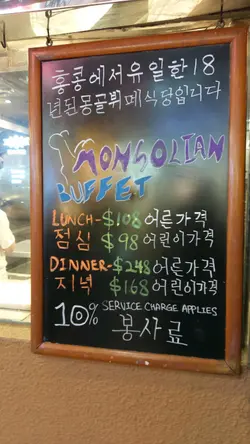 홍콩에서유일한18
년된몽골뷔페식당입니다
MONGOLIAN
BUFFET
LUNCH-$108 어른가격
점심 $98 어린이가격
DINNER-$248 어른가격
지녁 $168 어린이가격
10% SERVICE CHARGE APPLIES
봉사료